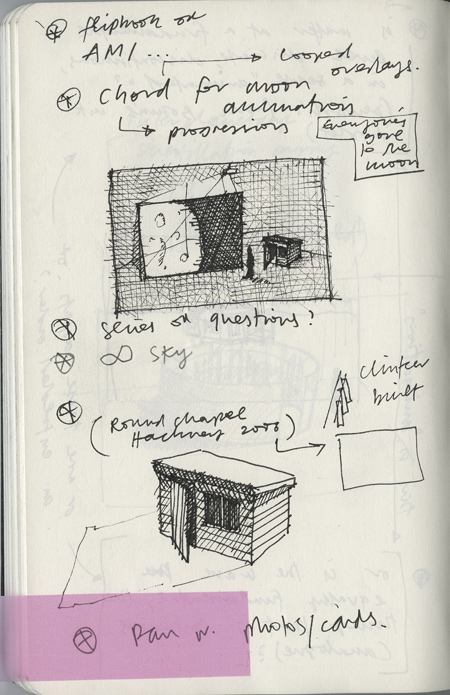 flipbook on
AMI ... → looped
overlays.
chord for moon
animation
↳ progression
Everyone's
gone
to the
moon
series on questions?
∞ sky
clinker
built
(Round Chapel
Hackney 2006)
Pan w. photos/cards.